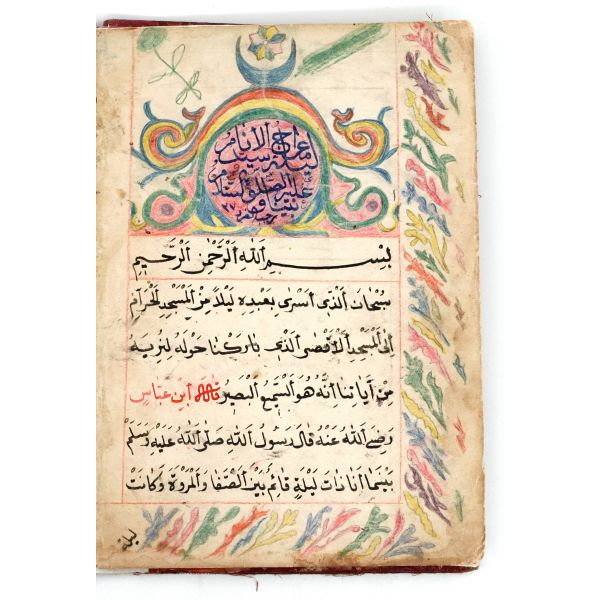 معراج الانام
ليلة سيد
عليه الصلوة والسلام
نبينا
بِسْمِ اَللهِ اَلرَّحْمٰنِ اَلرَّحِيْمِ
سُبْحَانَ اَلَّذِى اَسْرٰى بِعَبْدِهِ لَيْلًا مِنَ اَلْمَسْجِدِ الْحَرَامِ
اِلَى اَلْمَسْجِدِ اَلْاَقْصَى اَلَّذِى بَارَكْنَا حَوْلَهُ لِنُرِيَهُ
مِنْ آيَاتِنَا اِنَّهُ هُوَ اَلسَّمِيعُ اَلْبَصِيرُ قال اِبْنِ عَبَّاسٍ
رَضِىَ اَللهُ عَنْهُ قَالَ رَسُولُ اَللهِ صَلَّى اَللهُ عَلَيْهِ وَسَلَّمَ
بَيْنَمَا اَنَا ذَاتَ لَيْلَةٍ قَائِمٌ بَيْنَ اَلصَّفَا وَاَلْمَرْوَةِ وَكَانَتْ
ليلة